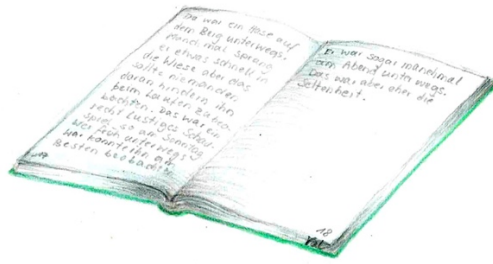 Da war ein Hase auf
dem Berg unterwegs.
Manchmal sprang
er etwas schnell in
die Wiese aber das
sollte niemanden
daran hindern ihn
beim Laufen zu beo
bachten. Das war ein
recht lustiges Schau-
spiel, so am Sonntag
Wer früh unterwegs
war konnte ihn am
Besten beobacht
17
Er war sogar manchmal
am Abend unterwegs.
Das war aber eher die
Seltenheit.
18